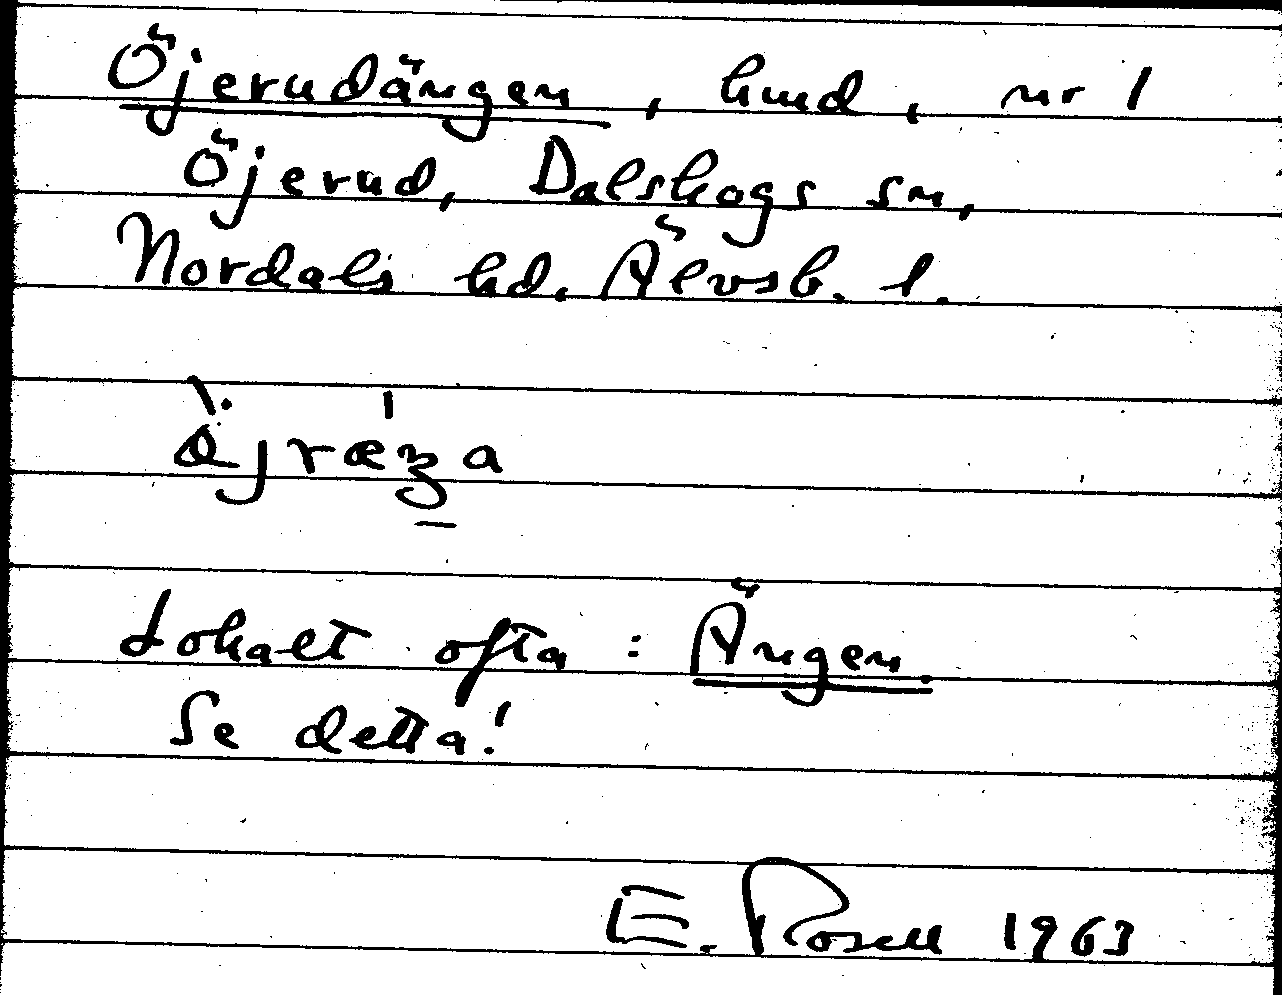 Öjerudängen, hmd, nr 1
Öjerud, Dalskogs sn,
Nordals hd. Älvsb. l.
Lokalt ofta: Ängen.
Se detta!
E. Rosell 1963